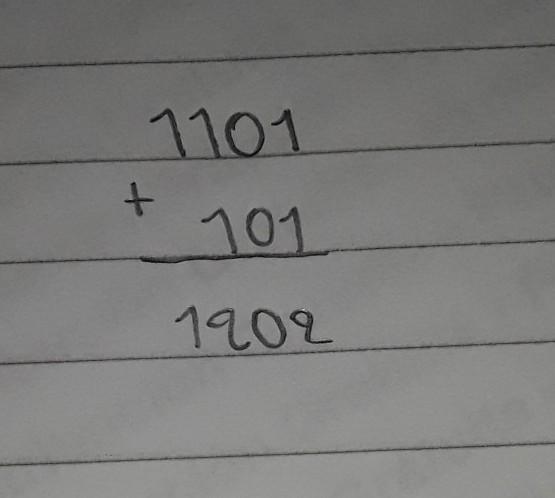 1101
+ 101
1202